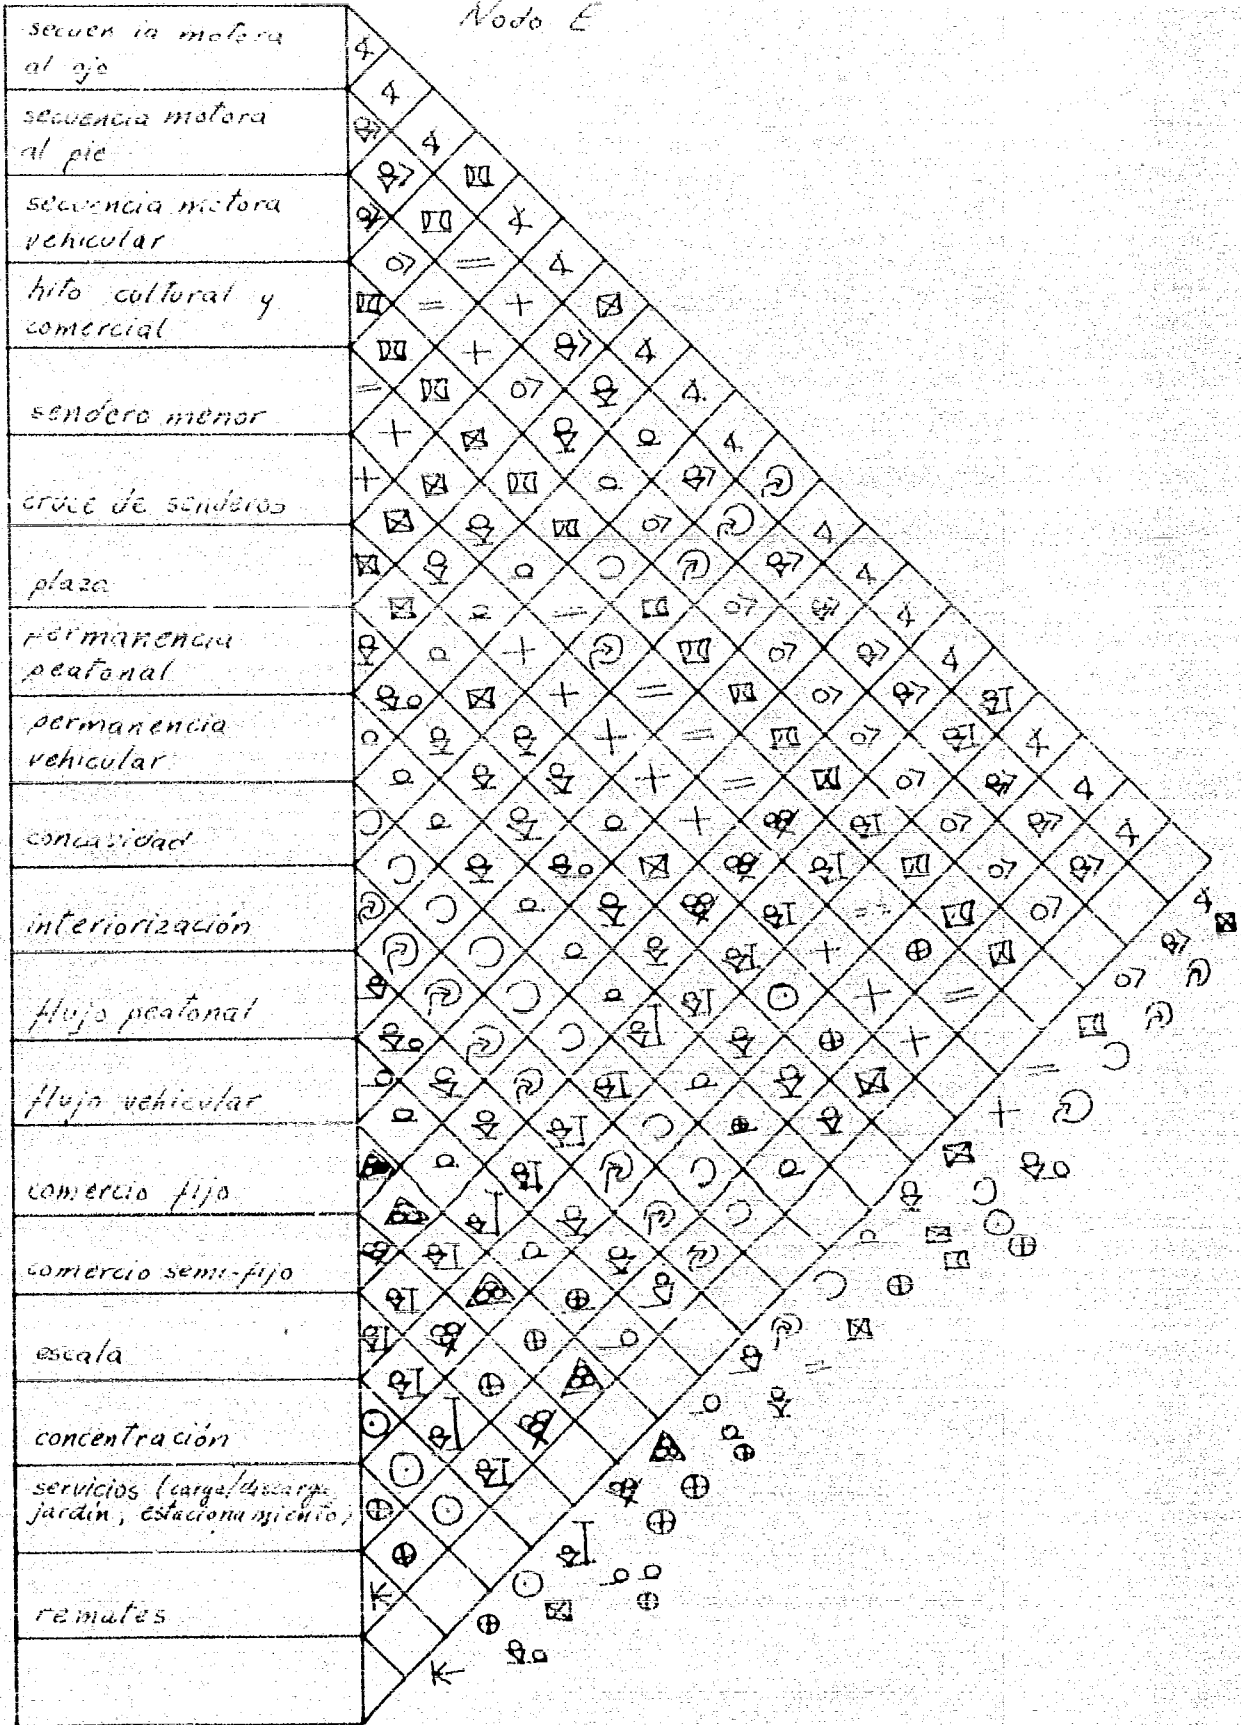 Nodo E
secuen ia motora
al ojo
secuencia motora
al pie
secuencia motora
vehicular
hito cultural y
comercial
sendero menor
cruce de senderos
plaza
permanencia
peatonal
permanencia
vehicular
concavidad
interiorización
flujo peatonal
flujo vehicular
comercio fijo
comercio semi-fijo
escala
concentración
servicios (carga/descarga
jardín, estacionamiento)
remates